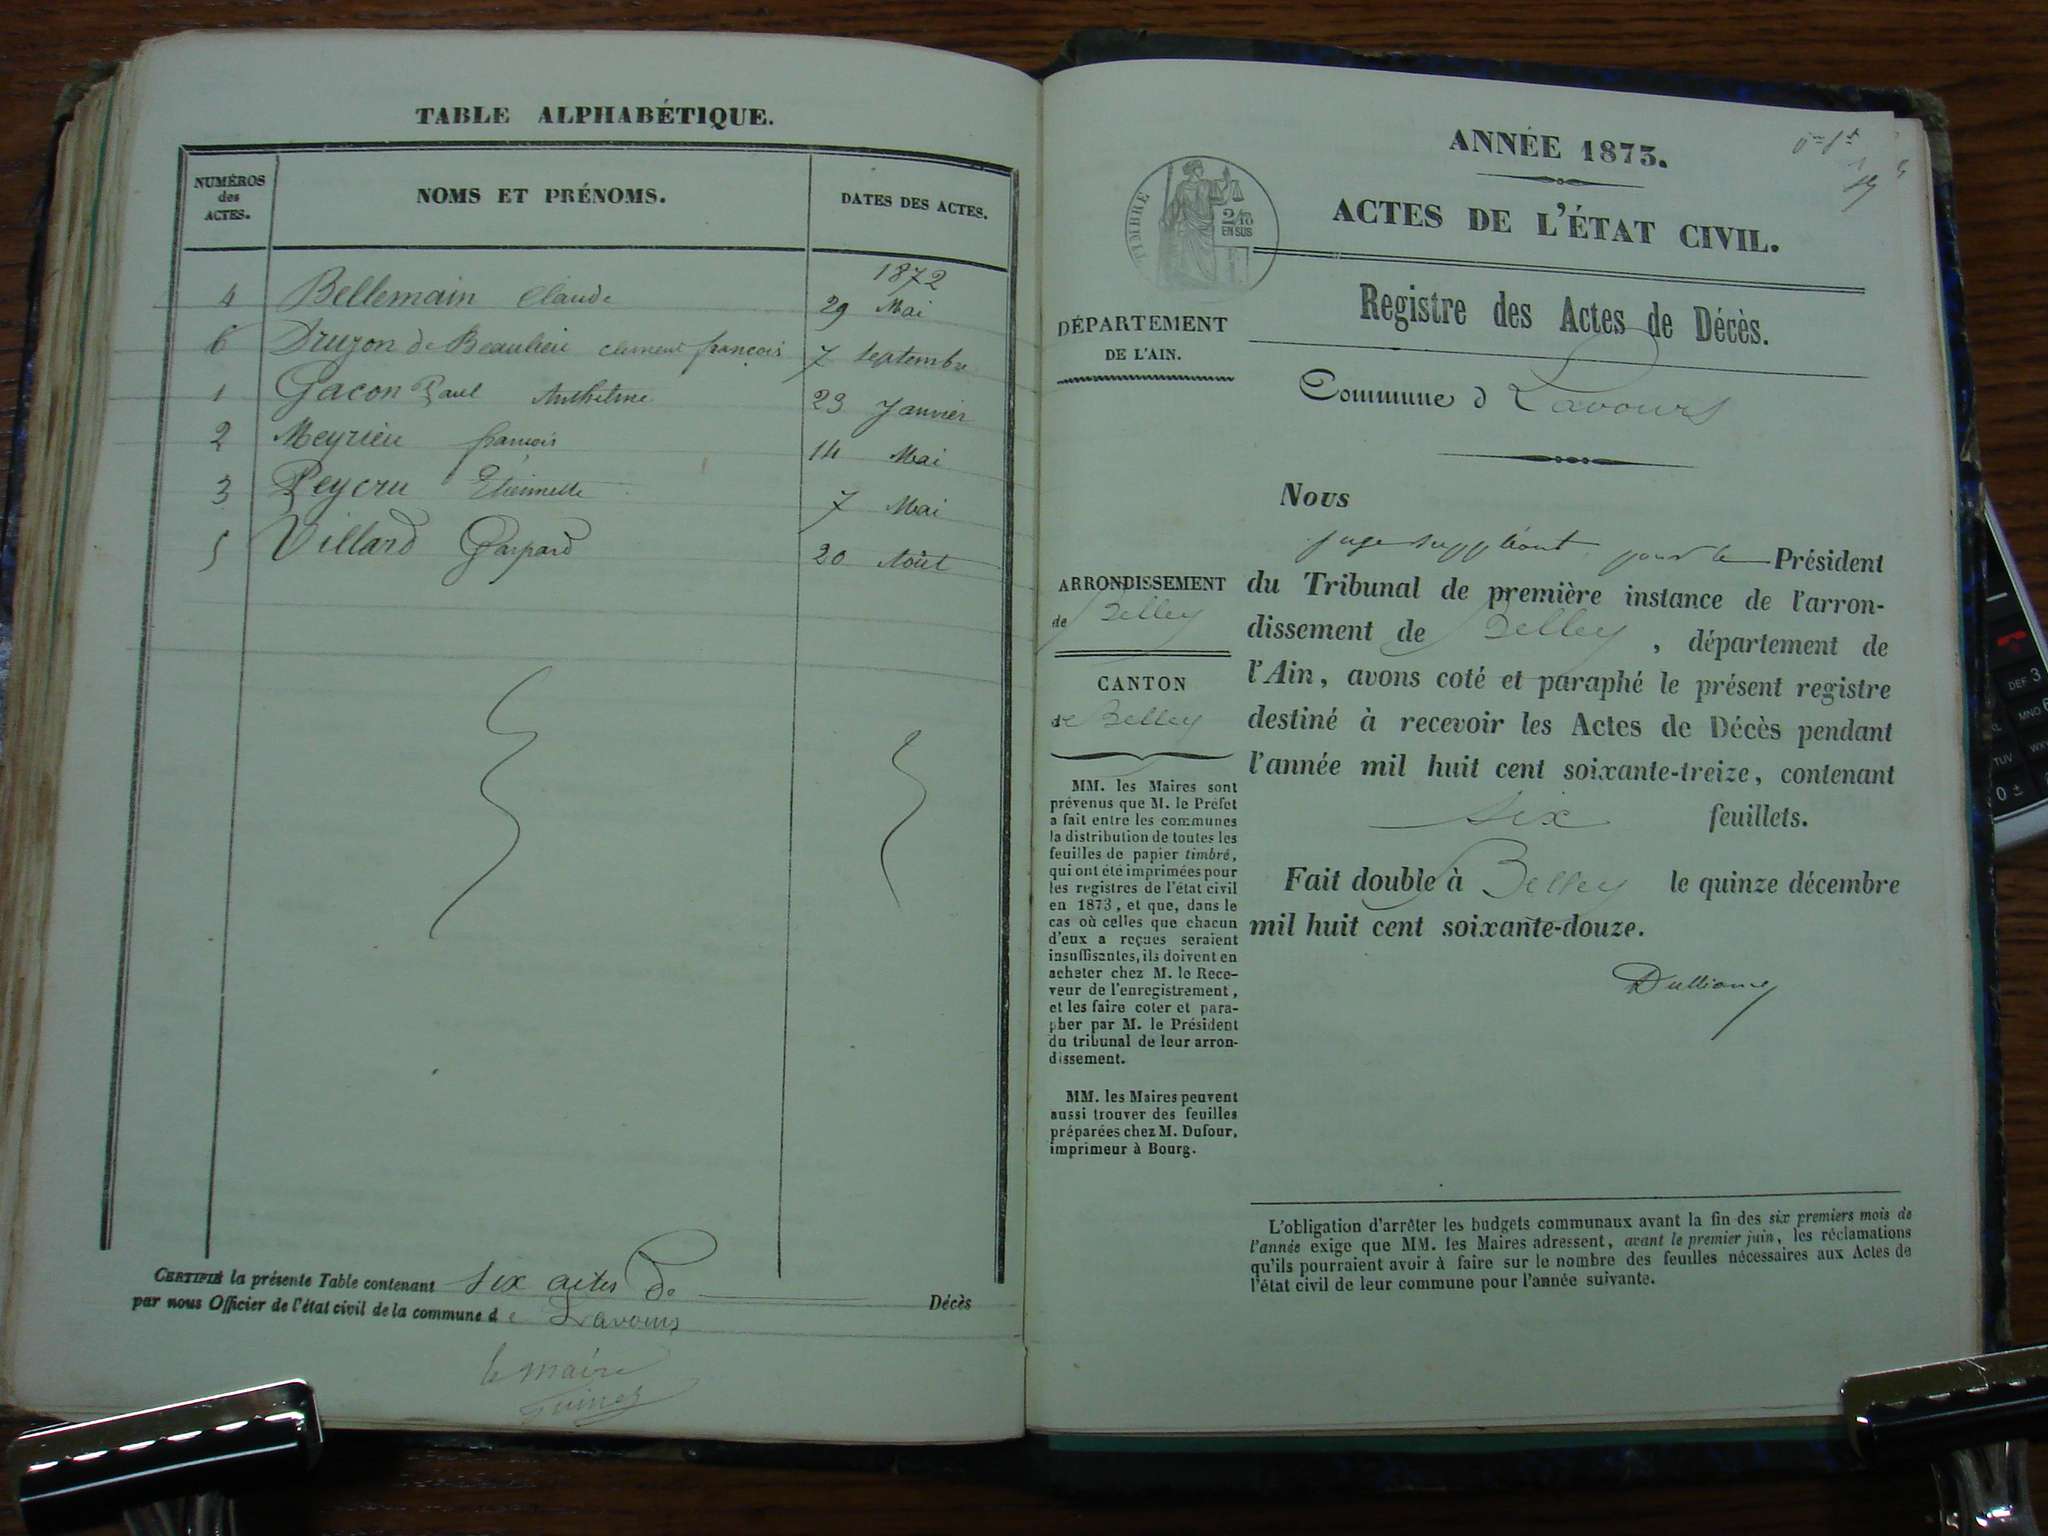 TABLE ALPHABÉTIQUE.
NUMÉROS
des
ACTES.
NOMS ET PRÉNOMS.
DATES DES ACTES.
1872
4 Bellemain Claude 29 Mai
6 Druzon de Beaulieu clément françois 7 Septembre
1 Gacon Paul Anthelme 23 Janvier
2 Meyrieu françois 14 Mai
3 Peycru Etiennette 7 Mai
5 Villard Gaspard 20 Août
CERTIFIÉ la présente Table contenant six actes de Décès
par nous Officier de l'état civil de la commune de Lavours
le maire
ANNÉE 1873.
ACTES DE L'ÉTAT CIVIL.
TIMBRE
2/10
EN SUS
Registre des Actes de Décès.
DÉPARTEMENT
DE L'AIN.
Commune d Lavours
ARRONDISSEMENT
de Belley
CANTON
de Belley
MM. les Maires sont
prévenus que M. le Préfet
a fait entre les communes
la distribution de toutes les
feuilles de papier timbré,
qui ont été imprimées pour
les registres de l'état civil
en 1873, et que, dans le
cas où celles que chacun
d'eux a reçues seraient
insuffisantes, ils doivent en
acheter chez M. le Rece-
veur de l'enregistrement,
et les faire coter et para-
pher par M. le Président
du tribunal de leur arron-
dissement.
MM. les Maires peuvent
aussi trouver des feuilles
préparées chez M. Dufour,
imprimeur à Bourg.
Nous
juge suppléant pour le Président
du Tribunal de première instance de l'arron-
dissement de Belley, département de
l'Ain, avons coté et paraphé le présent registre
destiné à recevoir les Actes de Décès pendant
l'année mil huit cent soixante-treize, contenant
six feuillets.
Fait double à Belley le quinze décembre
mil huit cent soixante-douze.
L'obligation d'arrêter les budgets communaux avant la fin des six premiers mois de
l'année exige que MM. les Maires adressent, avant le premier juin, les réclamations
qu'ils pourraient avoir à faire sur le nombre des feuilles nécessaires aux Actes de
l'état civil de leur commune pour l'année suivante.
DEF 3
MNO 6
TUV
0 ±